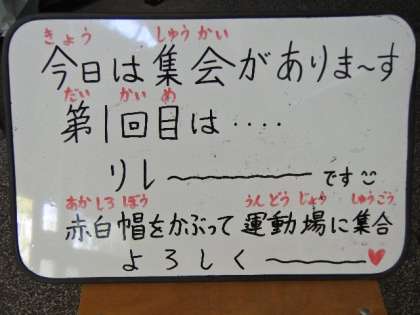 きょう しゅう かい
今日は集会がありま~す
だい かい め
第1回目は‥‥
リレ〜〜〜ですニコ
あか しろ ぼう うん どう じょう しゅうごう
赤白帽をかぶって 運動場に集合
よろしく〜〜〜♥